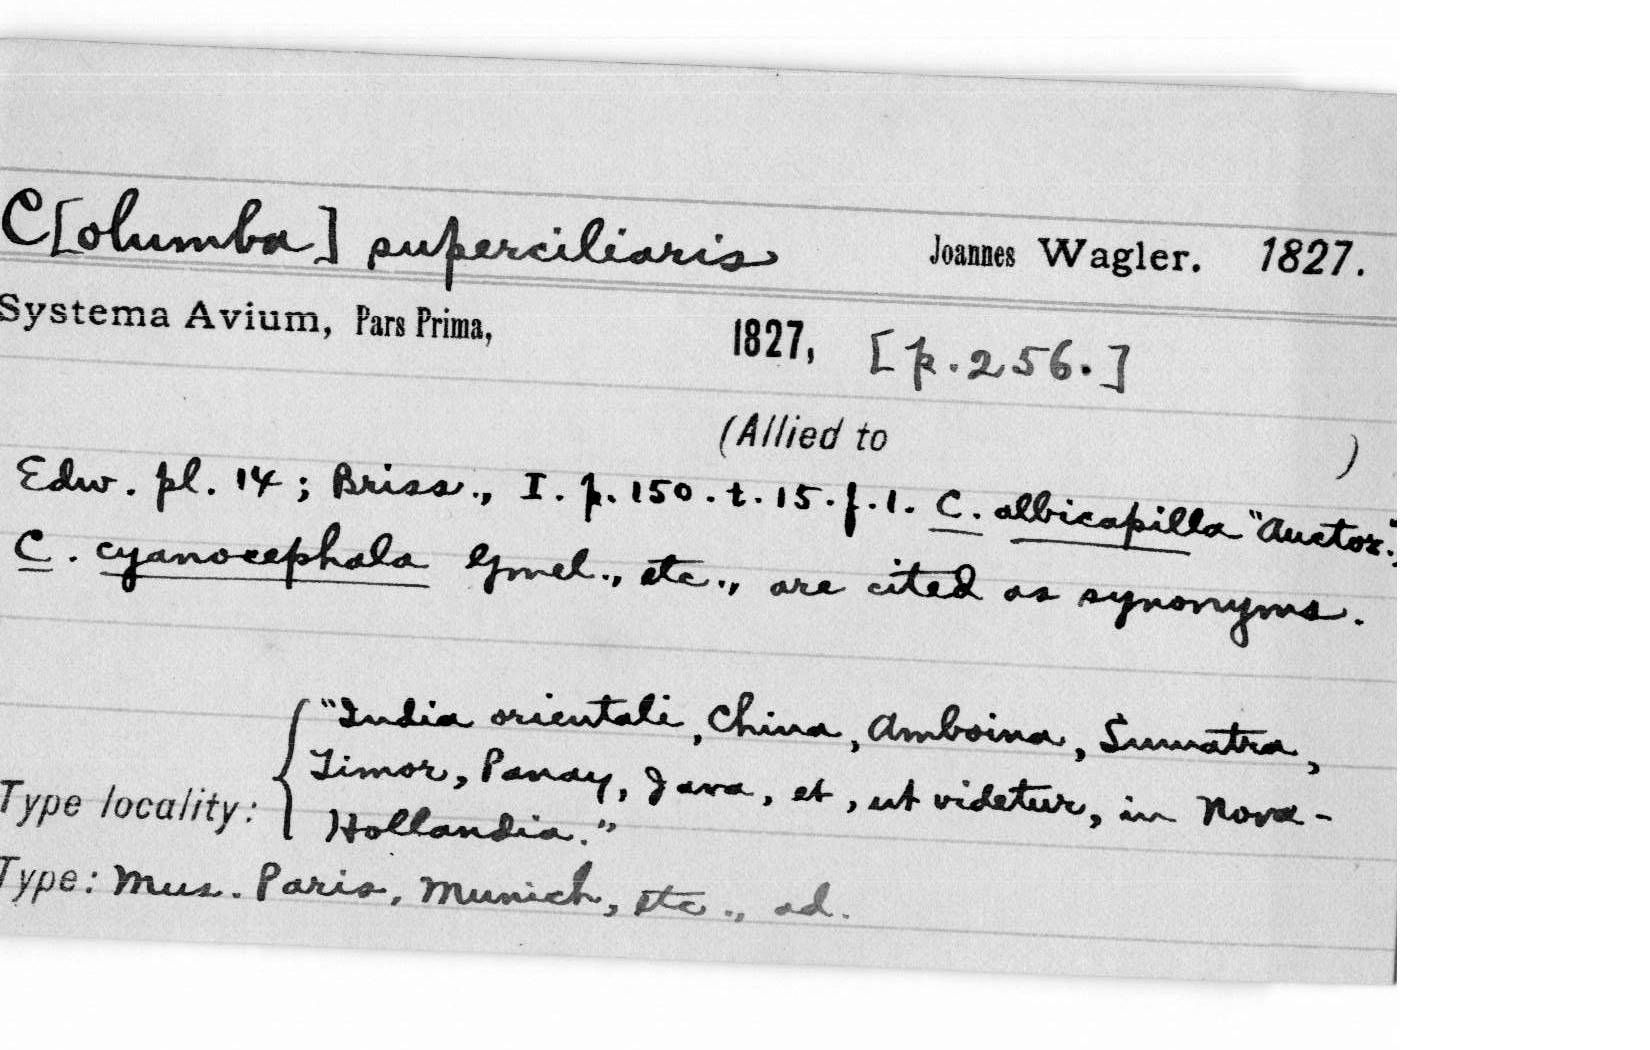 C[olumba] superciliaris Joannes Wagler. 1827.
Systema Avium, Pars Prima, 1827, [p. 256.]
(Allied to )
Edw. pl. 14; Briss., I. p. 150. t. 15. f. 1. C. albicapilla "Auctor.",
C. cyanocephala Gmel., etc., are cited as synonyms.
"India orientali, China, Amboina, Sumatra,
Timor, Panay, Java, et, ut videtur, in Nova-
Type locality: Hollandia."
Type: Mus. Paris, Munich, etc., ad.